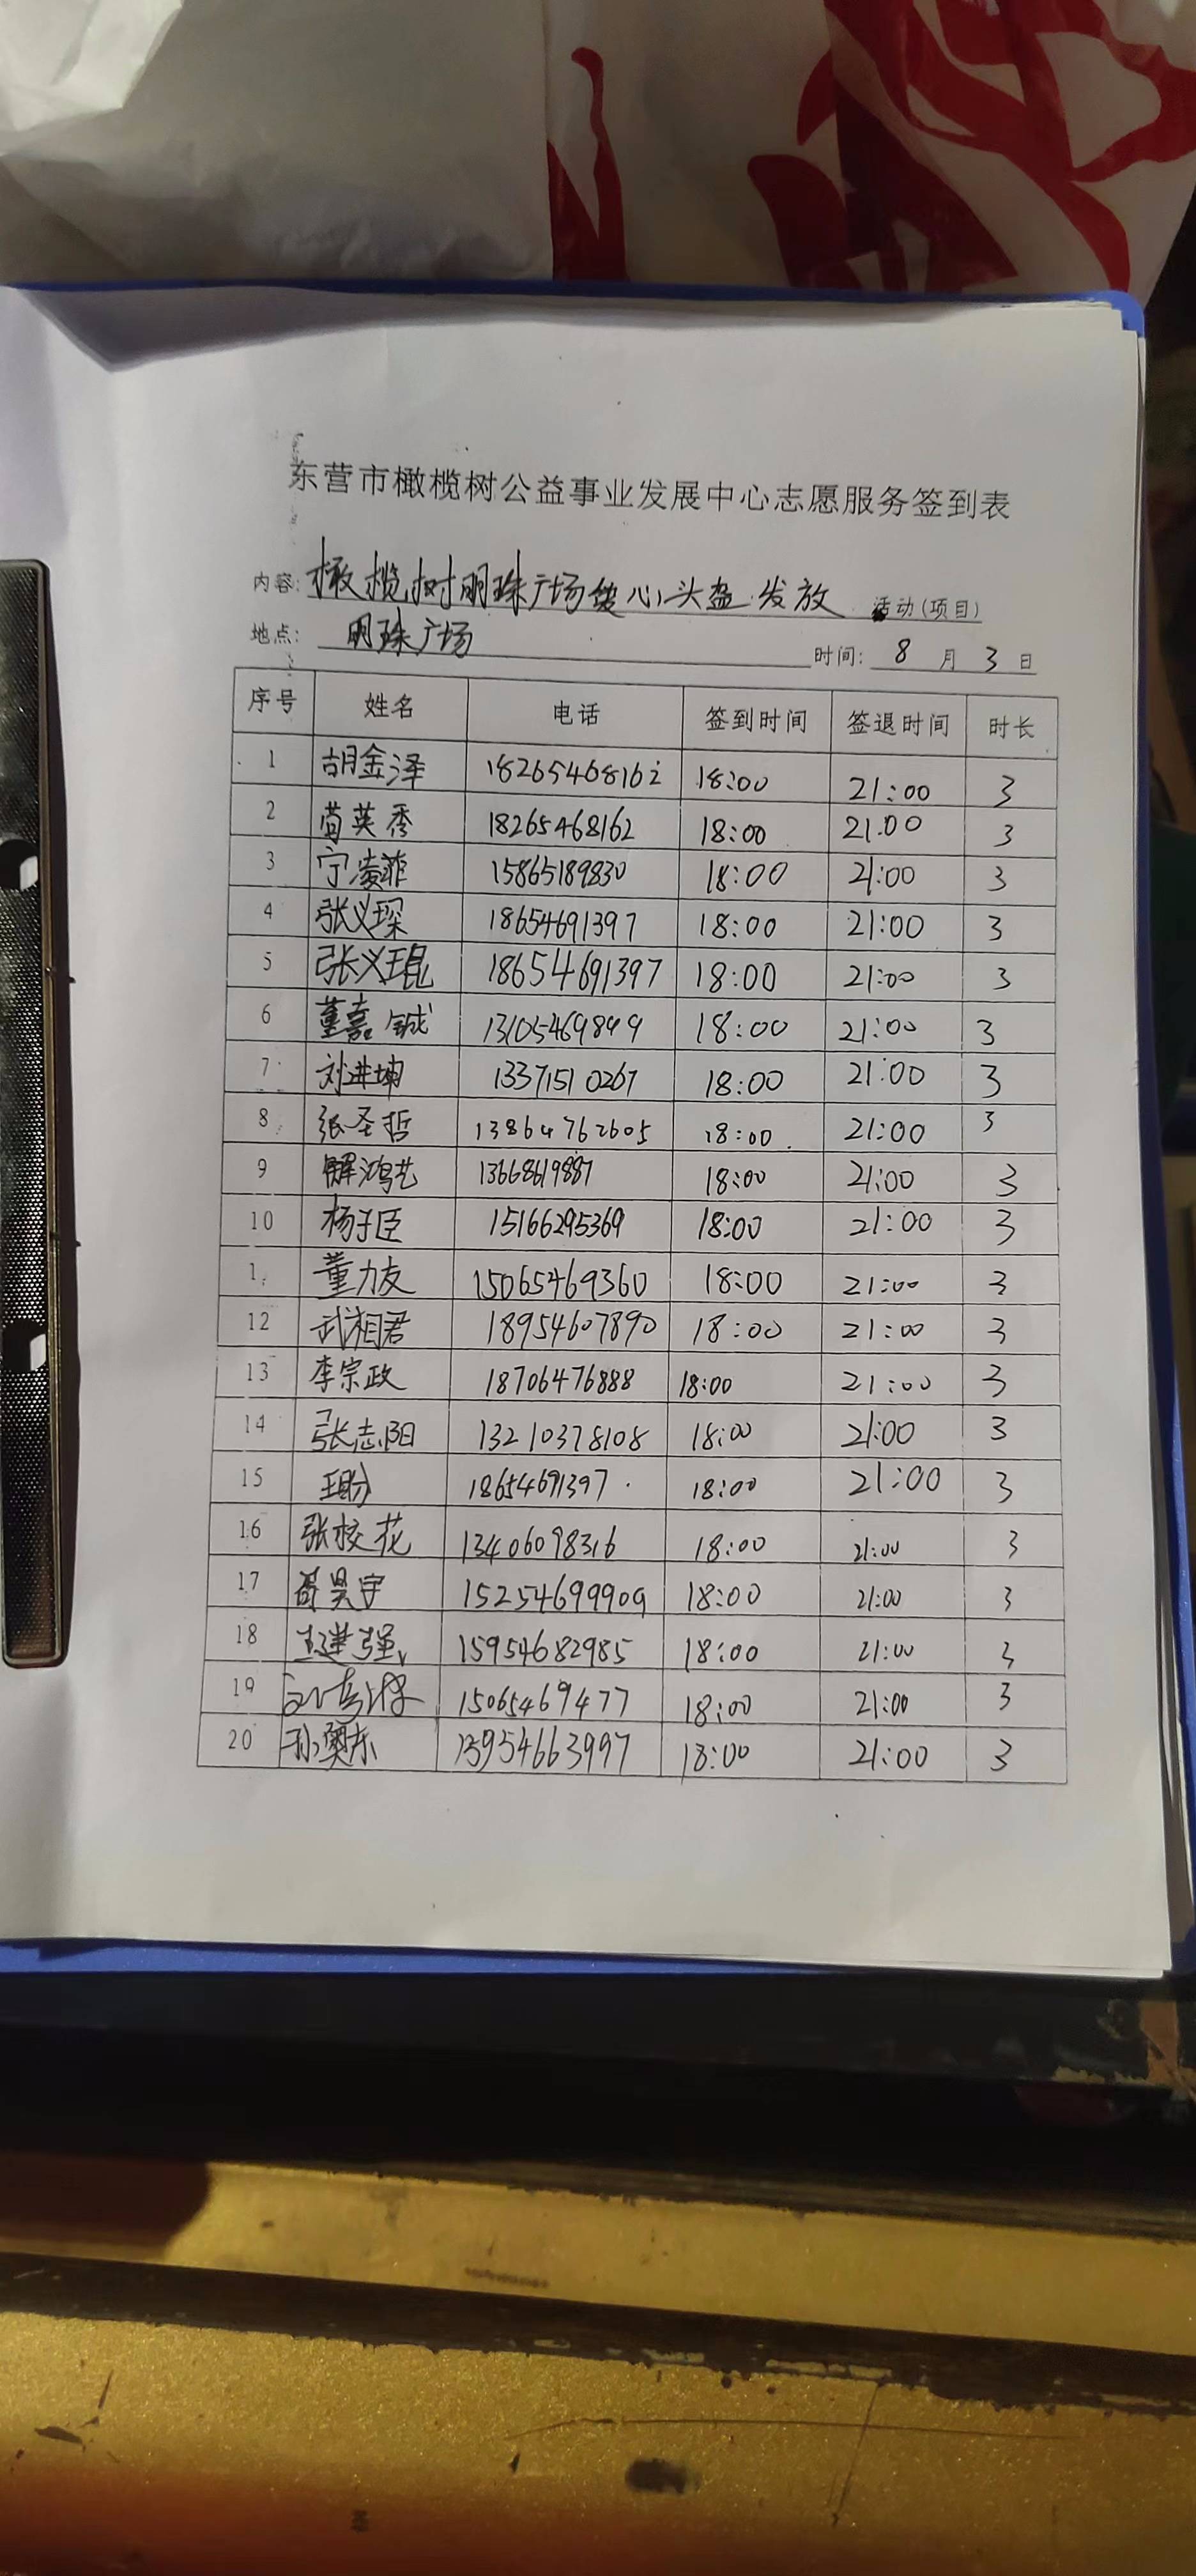 东营市橄榄树公益事业发展中心志愿服务签到表
内容: 橄榄树明珠广场 心头盔发放 活动(项目)
地点: 明珠广场 时间: 8 月 3 日
序号 姓名 电话 签到时间 签退时间 时长
1 胡金泽 18265468162 18:00 21:00 3
2 苘英秀 18265468162 18:00 21:00 3
3 宁凌菲 15865189830 18:00 21:00 3
4 张义琛 18654691397 18:00 21:00 3
5 张义琨 18654691397 18:00 21:00 3
6 董嘉铖 13105469849 18:00 21:00 3
7 刘进坤 13371510267 18:00 21:00 3
8 张圣哲 13864762605 18:00 21:00 3
9 解鸿艺 13668619887 18:00 21:00 3
10 杨子臣 15166295369 18:00 21:00 3
1 董力友 15065469360 18:00 21:00 3
12 武湘君 18954607890 18:00 21:00 3
13 李宗政 18706476888 18:00 21:00 3
14 张志阳 13210378108 18:00 21:00 3
15 王盼 18654691397 18:00 21:00 3
16 张校花 13406098316 18:00 21:00 3
17 昊宇 15254699909 18:00 21:00 3
18 王建强 15954682985 18:00 21:00 3
19 15065469477 18:00 21:00 3
20 孙奥东 13954663997 18:00 21:00 3